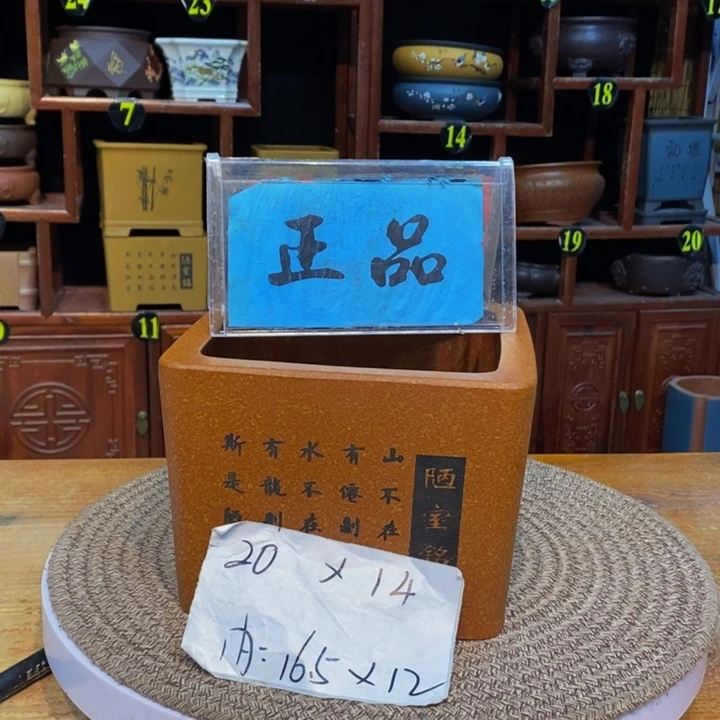 24
23
7
14
18
17
正品
19
20
11
陋室銘
山不在
有僊則
水不在
有龍則
斯是陋
20 x 14
内: 16.5 x 12